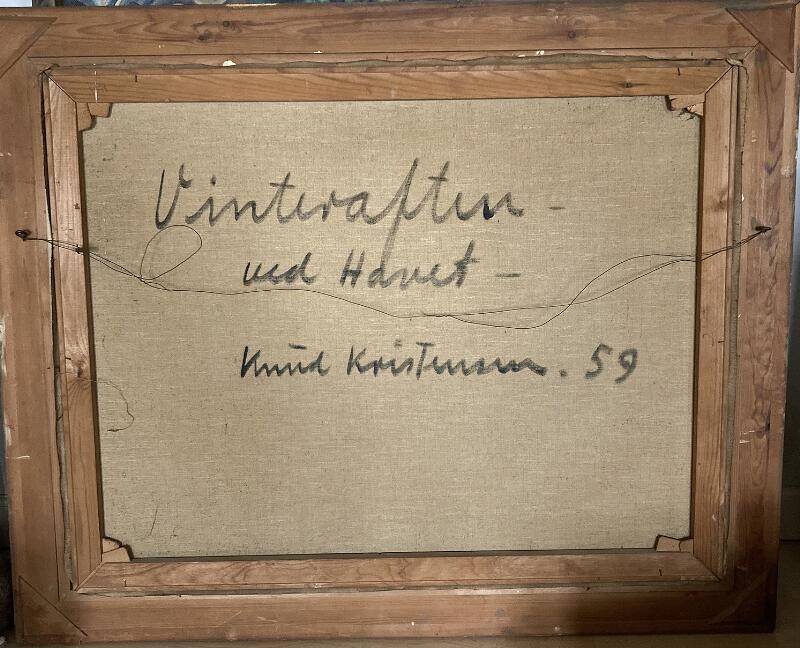 Vinteraften -
ved Havet -
Knud Kristensen. 59